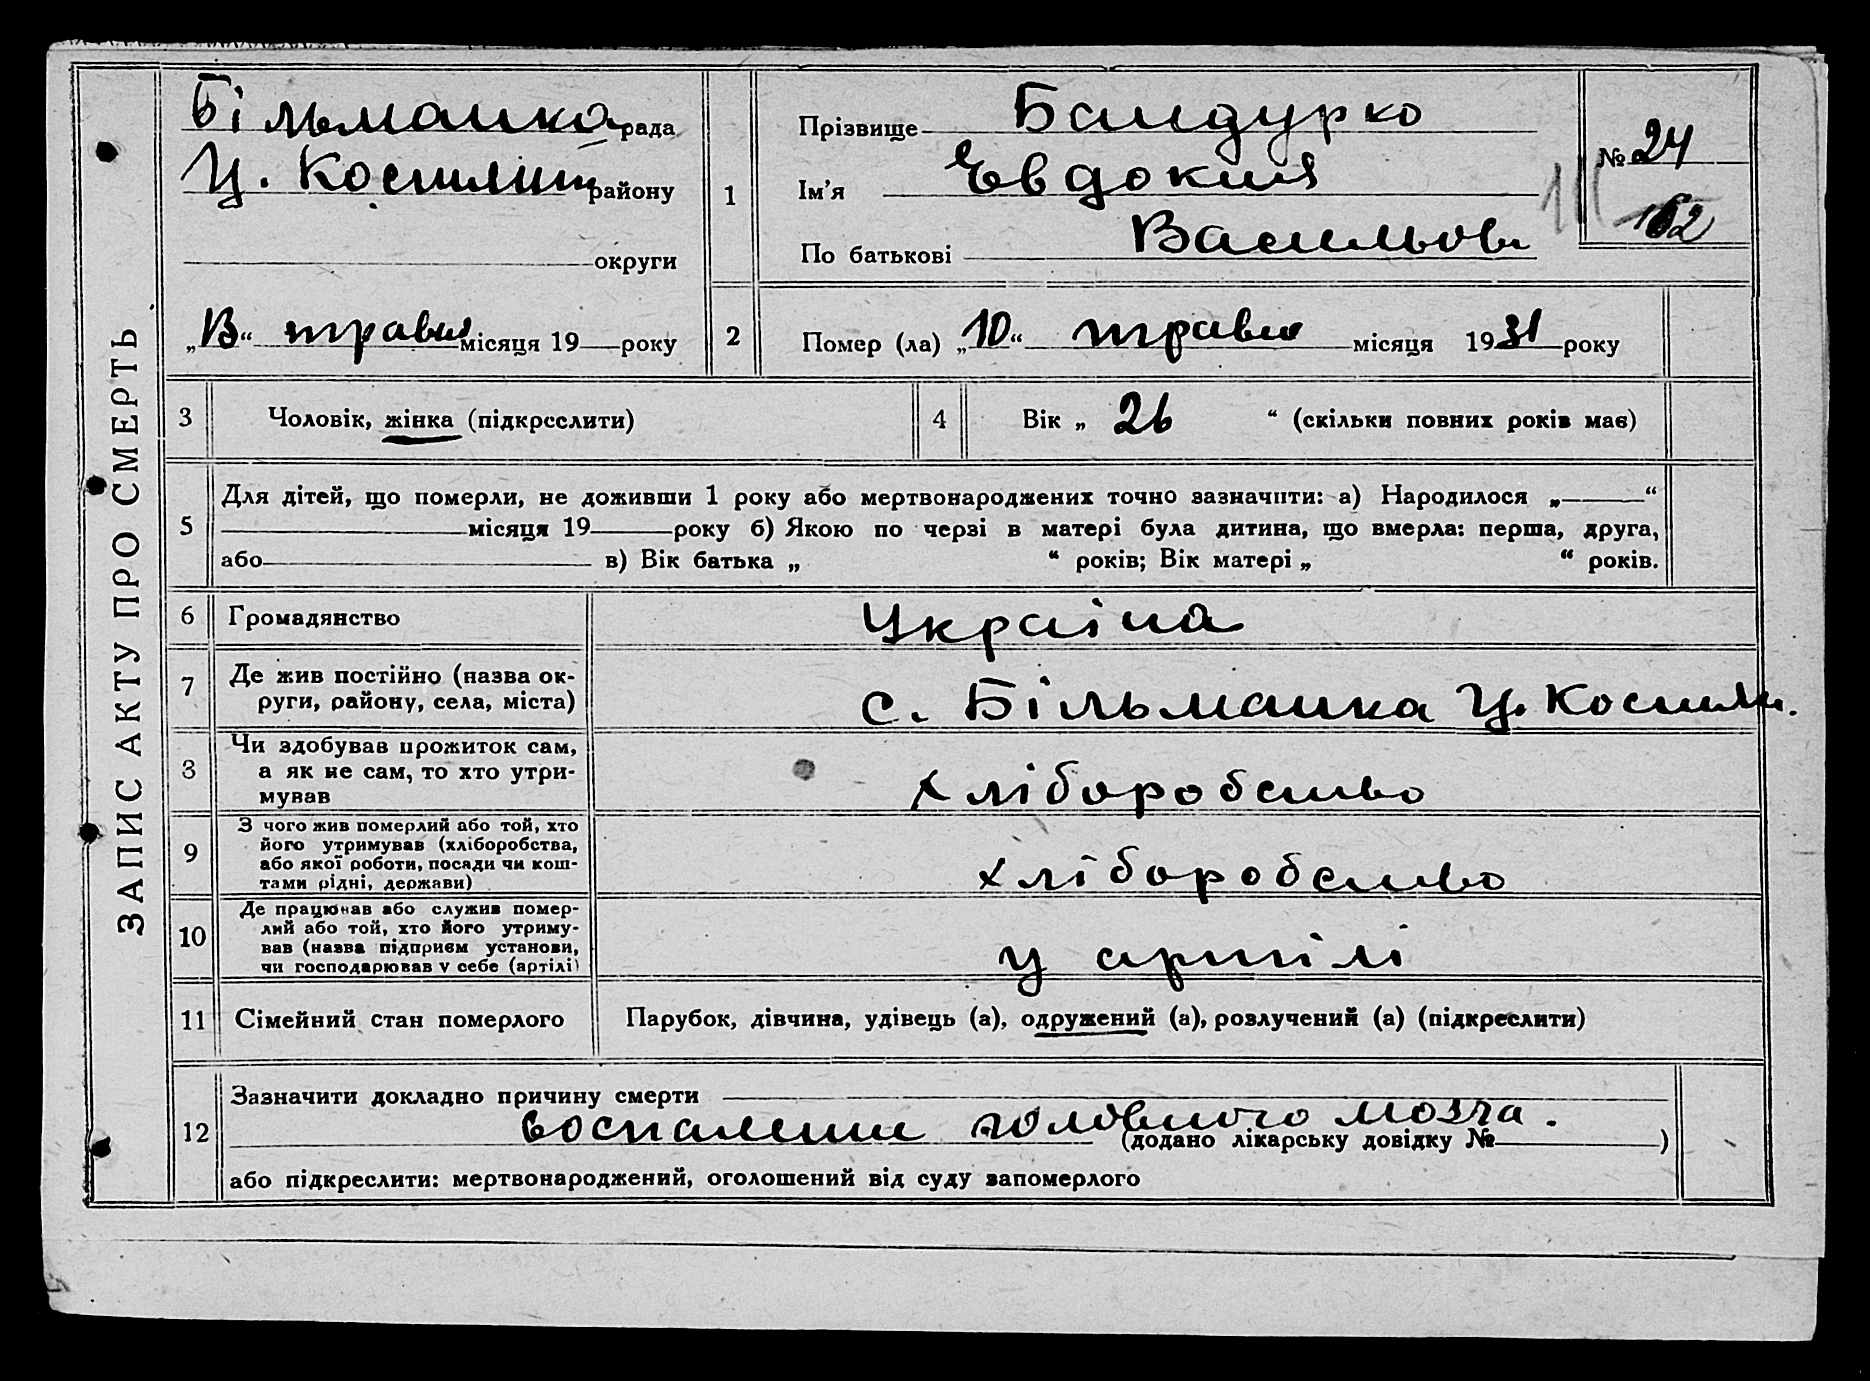 ЗАПИС АКТУ ПРО СМЕРТЬ
Більманка рада
Ц. Костянтин району
округи
„13“ травня місяця 19 року
1
Прізвище Бандурко
Ім’я Евдокия
По батькові Васильовн
№ 24
162
2
Помер (ла) „10“ травня місяця 1931 року
3 Чоловік, жінка (підкреслити)
4 Вік „ 26 “ (скільки повних років має)
5
Для дітей, що померли, не доживши 1 року або мертвонароджених точно зазначити: а) Народилося „ “
місяця 19 року б) Якою по черзі в матері була дитина, що вмерла: перша, друга,
або в) Вік батька „ “ років; Вік матері „ “ років.
6 Громадянство Україна
7 Де жив постійно (назва ок-
руги, району, села, міста)
с. Більманка Ц. Костян.
8 Чи здобував прожиток сам,
а як не сам, то хто утри-
мував
хліборобство
9 З чого жив померлий або той, хто
його утримував (хліборобства,
або якої роботи, посади чи кош-
тами рідні, держави)
хліборобство
10 Де працював або служив помер-
лий або той, хто його утриму-
вав (назва підприєм установи,
чи господарював у себе (артілі)
у артілі
11 Сімейний стан померлого Парубок, дівчина, удівець (а), одружений (а), розлучений (а) (підкреслити)
12
Зазначити докладно причину смерти
воспаление головного мозга.
(додано лікарську довідку № )
або підкреслити: мертвонароджений, оголошений від суду запомерлого